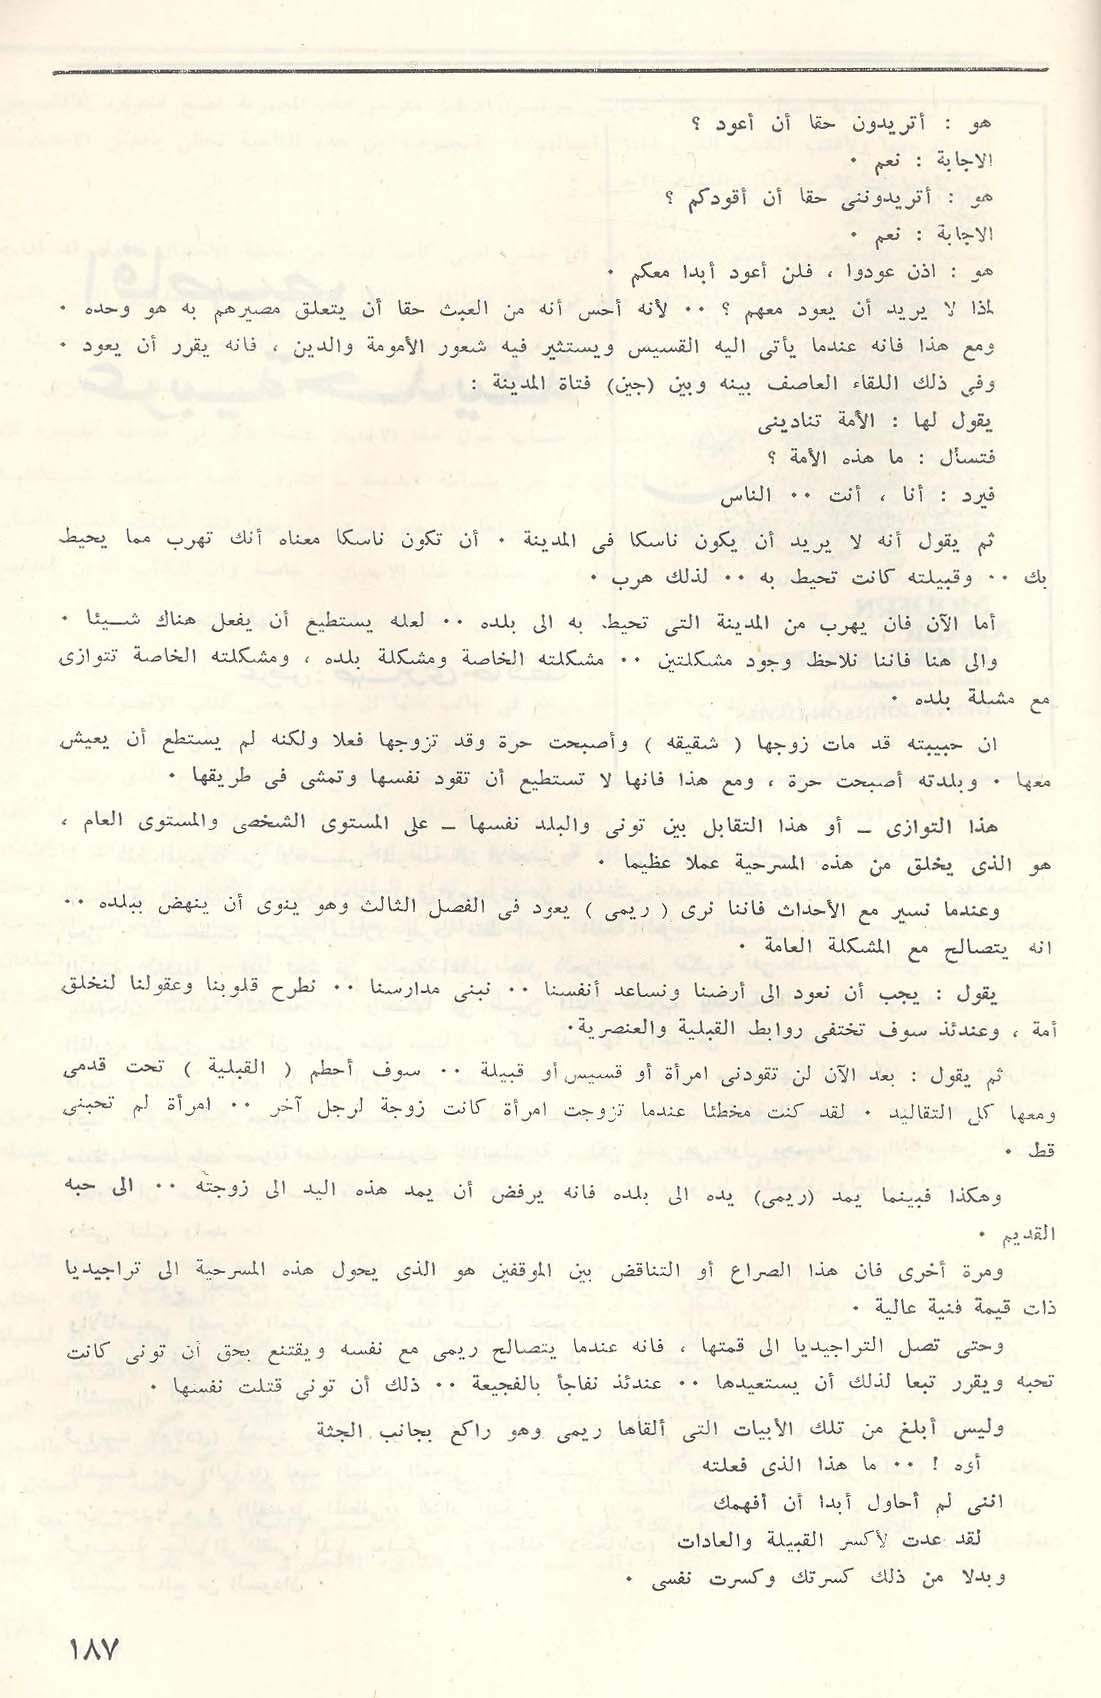 هو : أتريدون حقا أن أعود ؟
الاجابة : نعم ٠
هو : أتريدوننى حقا أن أقودكم ؟
الاجابة : نعم ٠
هو : اذن عودوا ، فلن أعود أبدا معكم ٠
لماذا لا يريد أن يعود معهم ؟ ٠٠ لأنه أحس أنه من العبث حقا أن يتعلق مصيرهم به هو وحده ٠
ومع هذا فانه عندما يأتى اليه القسيس ويستثير فيه شعور الأمومة والدين ، فانه يقرر أن يعود ٠
وفى ذلك اللقاء العاصف بينه وبين (جين) فتاة المدينة :
يقول لها : الأمة تنادينى
فتسأل : ما هذه الأمة ؟
فيرد : أنا ، أنت ٠٠ الناس
ثم يقول أنه لا يريد أن يكون ناسكا فى المدينة ٠ أن تكون ناسكا معناه أنك تهرب مما يحيط
بك ٠٠ وقبيلته كانت تحيط به ٠٠ لذلك هرب ٠
أما الآن فان يهرب من المدينة التى تحيط به الى بلده ٠٠ لعله يستطيع أن يفعل هناك شيئا ٠
والى هنا فاننا نلاحظ وجود مشكلتين ٠٠ مشكلته الخاصة ومشكلة بلده ، ومشكلته الخاصة تتوازى
مع مشلة بلده ٠
ان حبيبته قد مات زوجها ( شقيقه ) وأصبحت حرة وقد تزوجها فعلا ولكنه لم يستطع أن يعيش
معها ٠ وبلدته أصبحت حرة ، ومع هذا فانها لا تستطيع أن تقود نفسها وتمشى فى طريقها ٠
هذا التوازى ــ أو هذا التقابل بين تونى والبلد نفسها ــ على المستوى الشخصى والمستوى العام ،
هو الذى يخلق من هذه المسرحية عملا عظيما ٠
وعندما نسير مع الأحداث فاننا نرى ( ريمى ) يعود فى الفصل الثالث وهو ينوى أن ينهض ببلده ٠٠
انه يتصالح مع المشكلة العامة ٠
يقول : يجب أن نعود الى أرضنا ونساعد أنفسنا ٠٠ نبنى مدارسنا ٠٠ نطرح قلوبنا وعقولنا لنخلق
أمة ، وعندئذ سوف تختفى روابط القبلية والعنصرية٠
ثم يقول : بعد الآن لن تقودنى امرأة أو قسيس أو قبيلة ٠٠ سوف أحطم ( القبلية ) تحت قدمى
ومعها كل التقاليد ٠ لقد كنت مخطئا عندما تزوجت امرأة كانت زوجة لرجل آخر ٠٠ امرأة لم تحبنى
قط ٠
وهكذا فبينما يمد (ريمى) يده الى بلده فانه يرفض أن يمد هذه اليد الى زوجته ٠٠ الى حبه
القديم ٠
ومرة أخرى فان هذا الصراع أو التناقض بين الموقفين هو الذى يحول هذه المسرحية الى تراجيديا
ذات قيمة فنية عالية ٠
وحتى تصل التراجيديا الى قمتها ، فانه عندما يتصالح ريمى مع نفسه ويقتنع بحق أن تونى كانت
تحبه ويقرر تبعا لذلك أن يستعيدها ٠٠ عندئذ نفاجأ بالفجيعة ٠٠ ذلك أن تونى قتلت نفسها ٠
وليس أبلغ من تلك الأبيات التى ألقاها ريمى وهو راكع بجانب الجثة
أوه ! ٠٠ ما هذا الذى فعلته
اننى لم أحاول أبدا أن أفهمك
لقد عدت لأكسر القبيلة والعادات
وبدلا من ذلك كسرتك وكسرت نفسى ٠
١٨٧